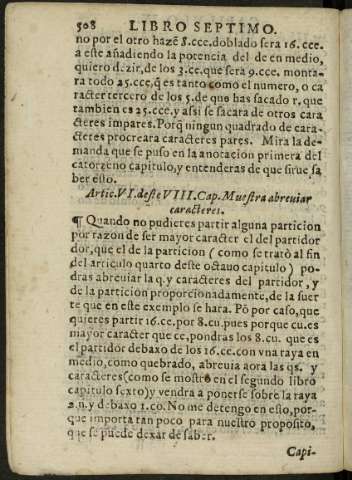 508 LIBRO SEPTIMO.
no por el otro hazẽ 8.cce.doblado sera 16. cce.
a este añadiendo la potencia del de en medio,
quiero dezir, de los 3.ce.que sera 9.cce. monta-
ra todo 25.cce,q̃ es tanto como el numero, o ca
racter tercero de los 5.de que has sacado r, que
tambien es 25.cce,y assi se sacara de otros cara
cteres impares. Porq̃ ningun quadrado de cara-
cteres procreara caracteres pares. Mira la de-
manda que se puso en la anotacion primera del
catorzeno capitulo, y entenderas de que sirue sa
ber esto.
Artic. VI. deste VIII. Cap. Muestra abreuiar
caracteres.
¶ Quando no pudieres partir alguna particion
por razon de ser mayor caracter el del partidor
dor, que el de la particion ( como se tratò al fin
del articulo quarto deste octauo capitulo ) po-
dras abreuiar la q.y caracteres del partidor, y
de la particion proporcionadamente, de la suer
te que en este exemplo se hara. Põ por caso, que
quieres partir 16.ce,por 8.cu.pues porque cu.es
mayor caracter que ce,pondras los 8.cu. que es
el partidor debaxo de los 16.ce.con vna raya en
medio, como quebrado, abreuia aora las qs. y
caracteres (como se mostrò en el segundo libro
capitulo sexto) y vendra a ponerse sobre la raya
2.n.y debaxo 1.co. No me detengo en esto, por-
que importa tan poco para nuestro proposito,
que se puede dexar de saber.
Capi-